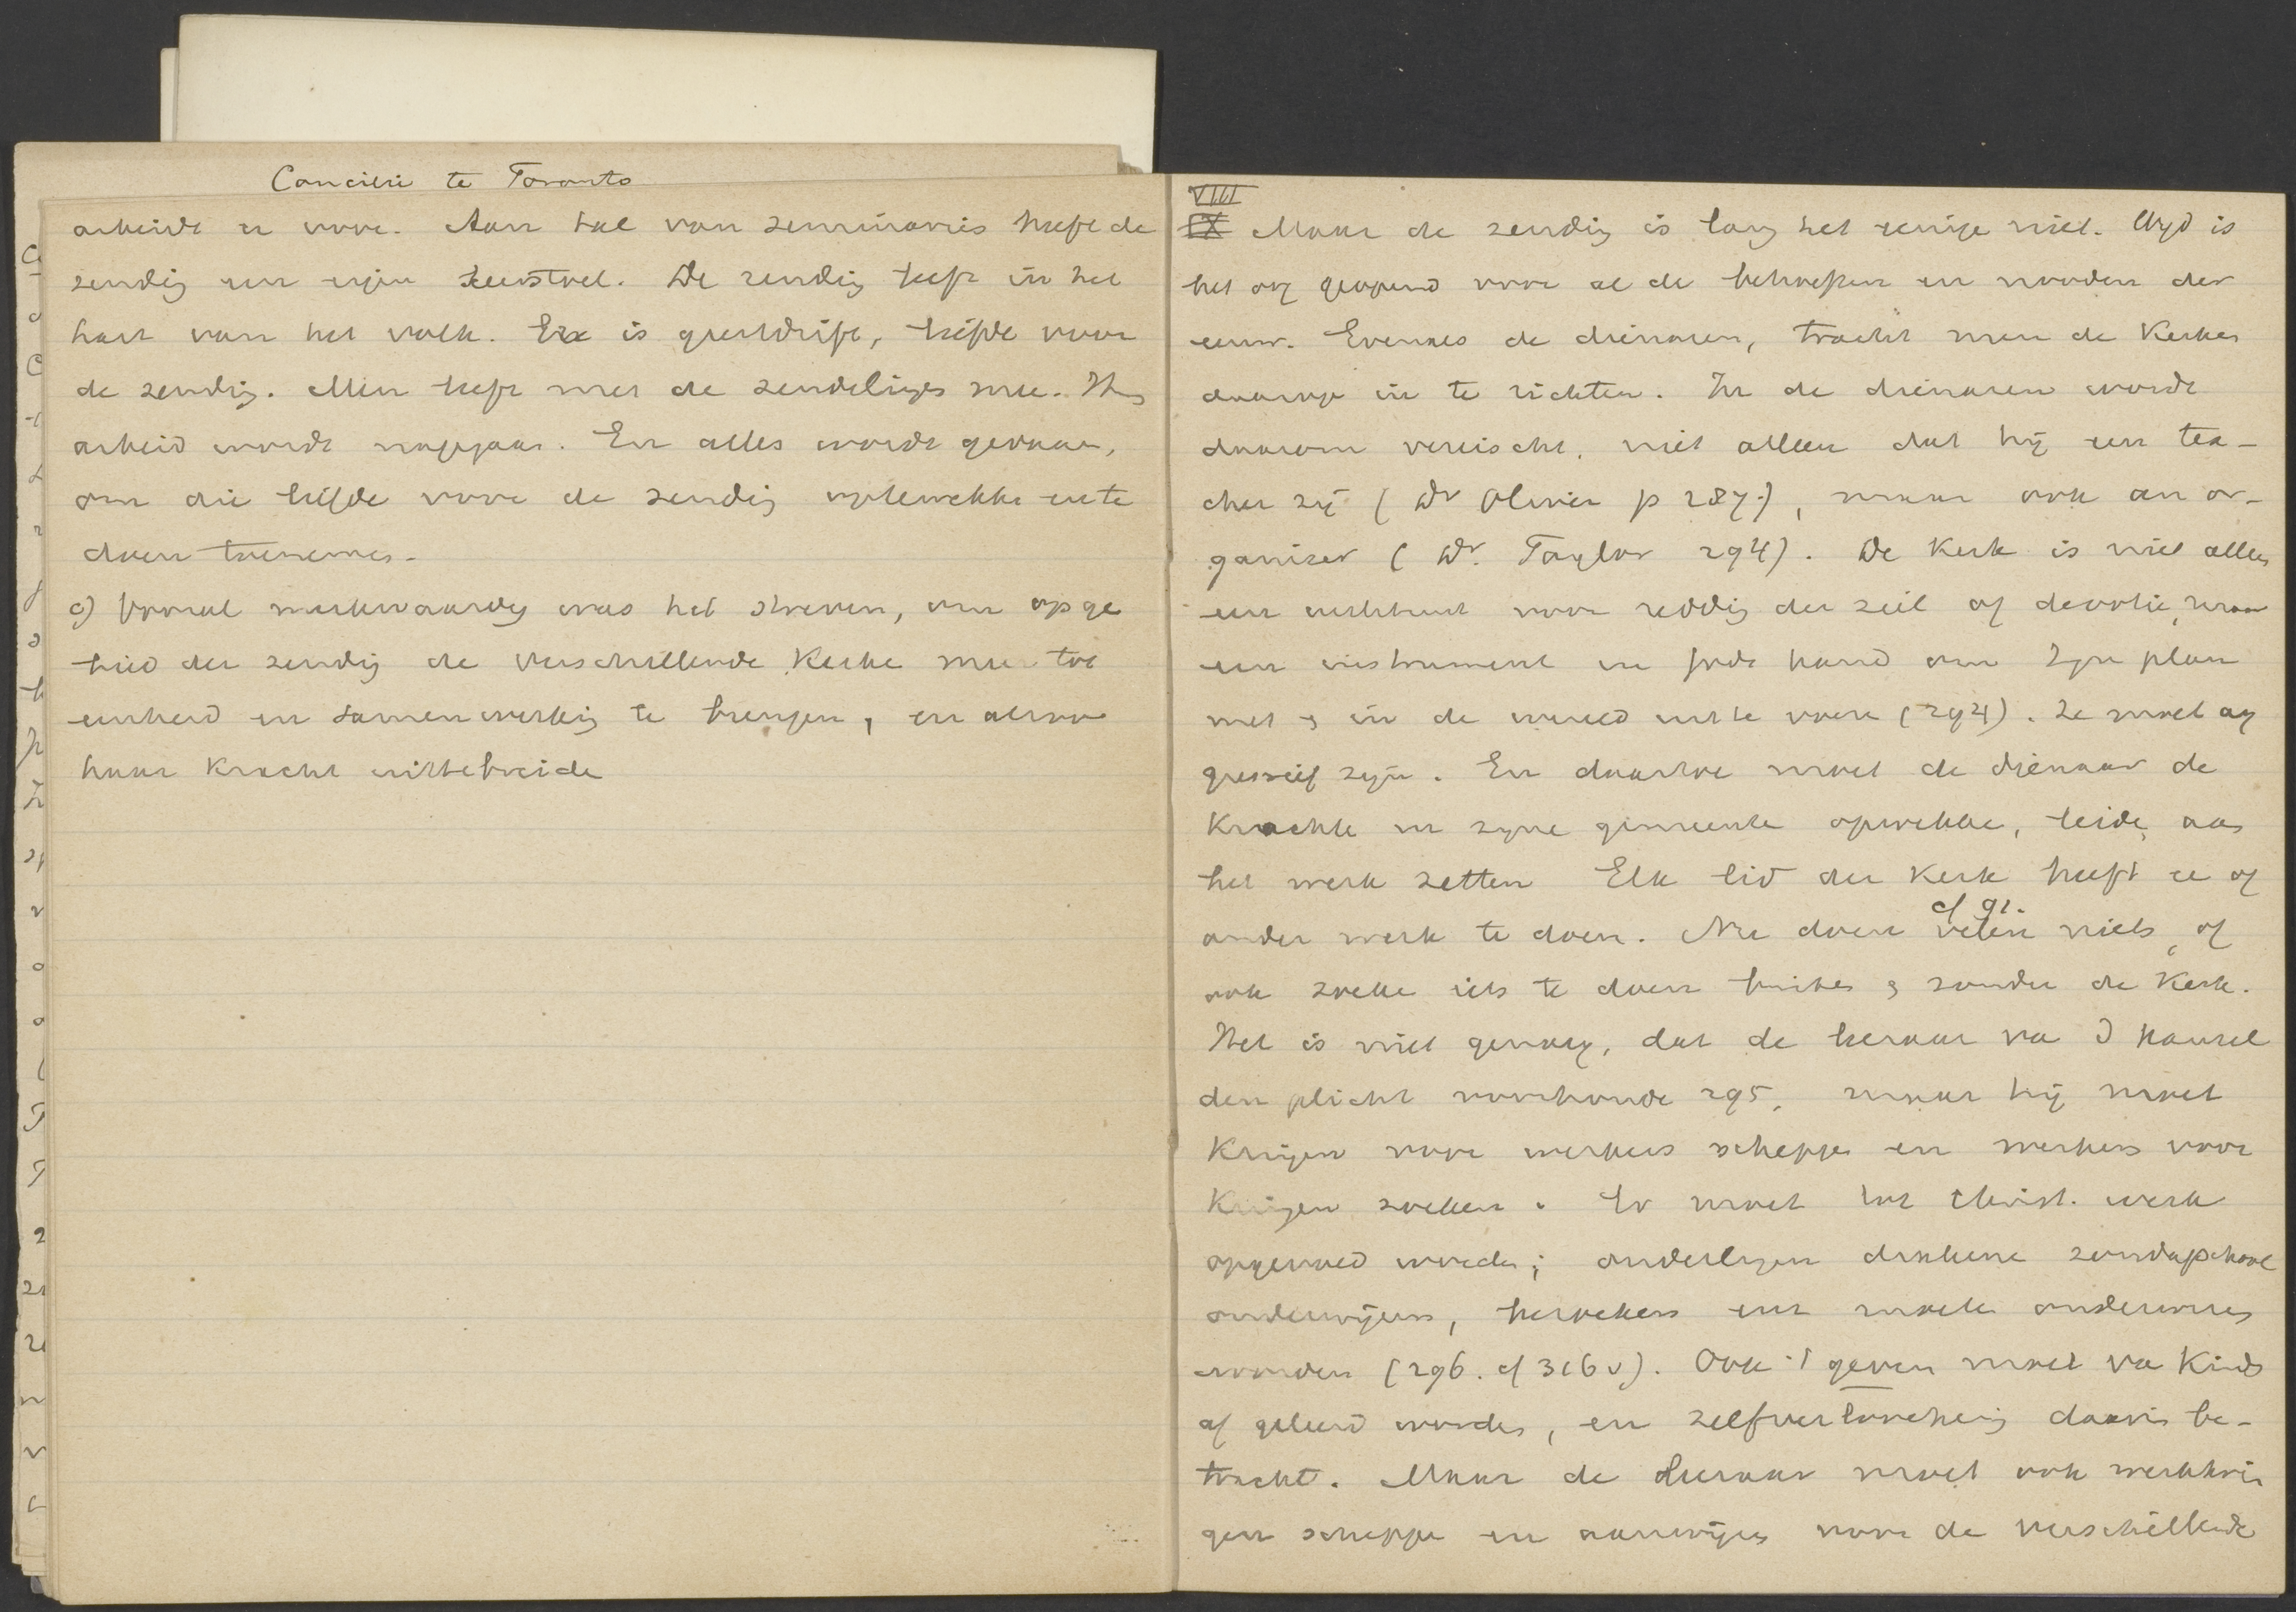 Concilie te Toronto
arbeidt er voor. Aan tal van seminaries heeft de
zending een eigen leerstoel. De zending leeft in het
hart van het volk. Er is geestdrift, liefde voor
de zending. Men leeft met de zendelingen mee. Hun
arbeid wordt nagegaan. En alles wordt gedaan,
om die liefde voor de zending op te wekken en te
doen toenemen.
c) Vooral merkwaardig was het streven, om op ge
bied der zending de verschillende Kerken meer tot
eenheid en samenwerking te brengen, en alzoo
haar kracht uit te breiden
VIII
IX Maar de zending is lang het eenige niet. Wijd is
het oog geopend voor al de behoeften en nooden der
eeuw. Evenals de dienaren, tracht men de Kerken
daarop in te richten. In de dienaren wordt
daarom vereischt, niet alleen dat hij een tea-
cher zij (Dr Oliver p 287), maar ook an or-
ganizer (Dr. Taylor 294). De Kerk is niet alleen
een instituut voor redding der ziel of devotie, maar
een instrument in Gods hand om Zijn plan
met & in de wereld uit te voeren (294). Ze moet ag
gressief zijn. En daartoe moet de dienaar de
Krachten in zijne gemeente opwekken, leiden, aan
het werk zetten Elk lid der Kerk heeft een of
ander werk te doen. Nu doen velen niets, of
cf 91.
ook zoeken iets te doen buiten & zonder de Kerk.
Het is niet genoeg, dat de leeraar van d kansel
den plicht voorhoude 295, maar hij moet
Kringen voor werkers scheppen en werkers voor
Kringen zoeken. Er moet tot Christ. werk
opgevoed worden; ouderlingen diakenen zondagschool
onderwijzers, bezoekers enz moeten onderwezen
worden (296. cf 316 v). Ook 't geven moet van Kinds
af geleerd worden, en zelfverloochening daarin be-
tracht. Maar de Leeraar moet ook werkkrin
gen scheppen en aanwijzen voor de verschillende